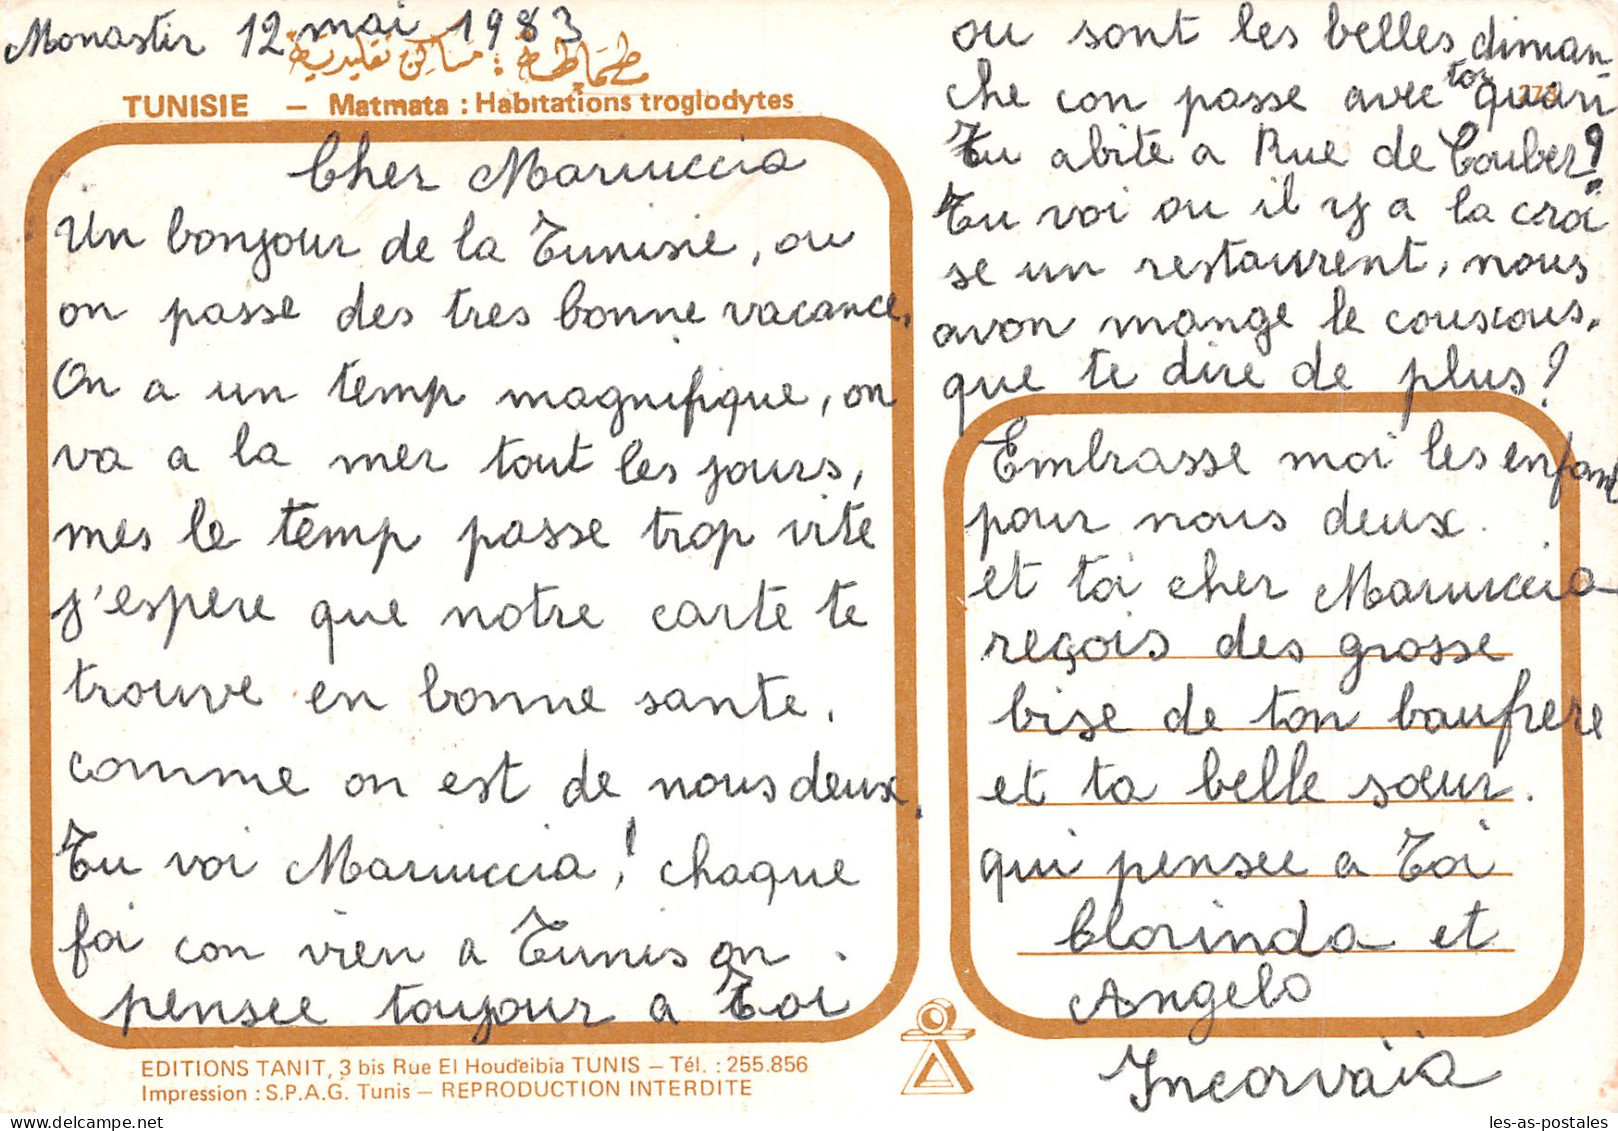 Monastir 12 mai 1983
مطماطة : مساكن تقليدية
TUNISIE — Matmata : Habitations troglodytes
Cher Mariuccia
Un bonjour de la Tunisie, ou
on passe des tres bonne vacance,
On a un temp magnifique, on
va a la mer tout les jours,
mes le temp passe trop vite
j'espere que notre carte te
trouve en bonne sante,
comme on est de nous deux,
Tu voi Mariuccia! chaque
foi con vien a Tunis on
pensee toujour a Toi
ou sont les belles diman-
che con passe avec toi quan
Tu abite a Rue de Couber?
Tu voi ou il y a la croi
se un restaurent, nous
avon mange le couscous,
que te dire de plus?
Embrasse moi les enfant
pour nous deux.
et toi cher Mariuccia
reçois des grosse
bise de ton baufrere
et ta belle sœur.
qui pensee a Toi
Clorinda et
Angelo
Incorvaia
EDITIONS TANIT, 3 bis Rue El Houdeibia TUNIS — Tél. : 255.856
Impression : S.P.A.G. Tunis — REPRODUCTION INTERDITE
les-as-postales